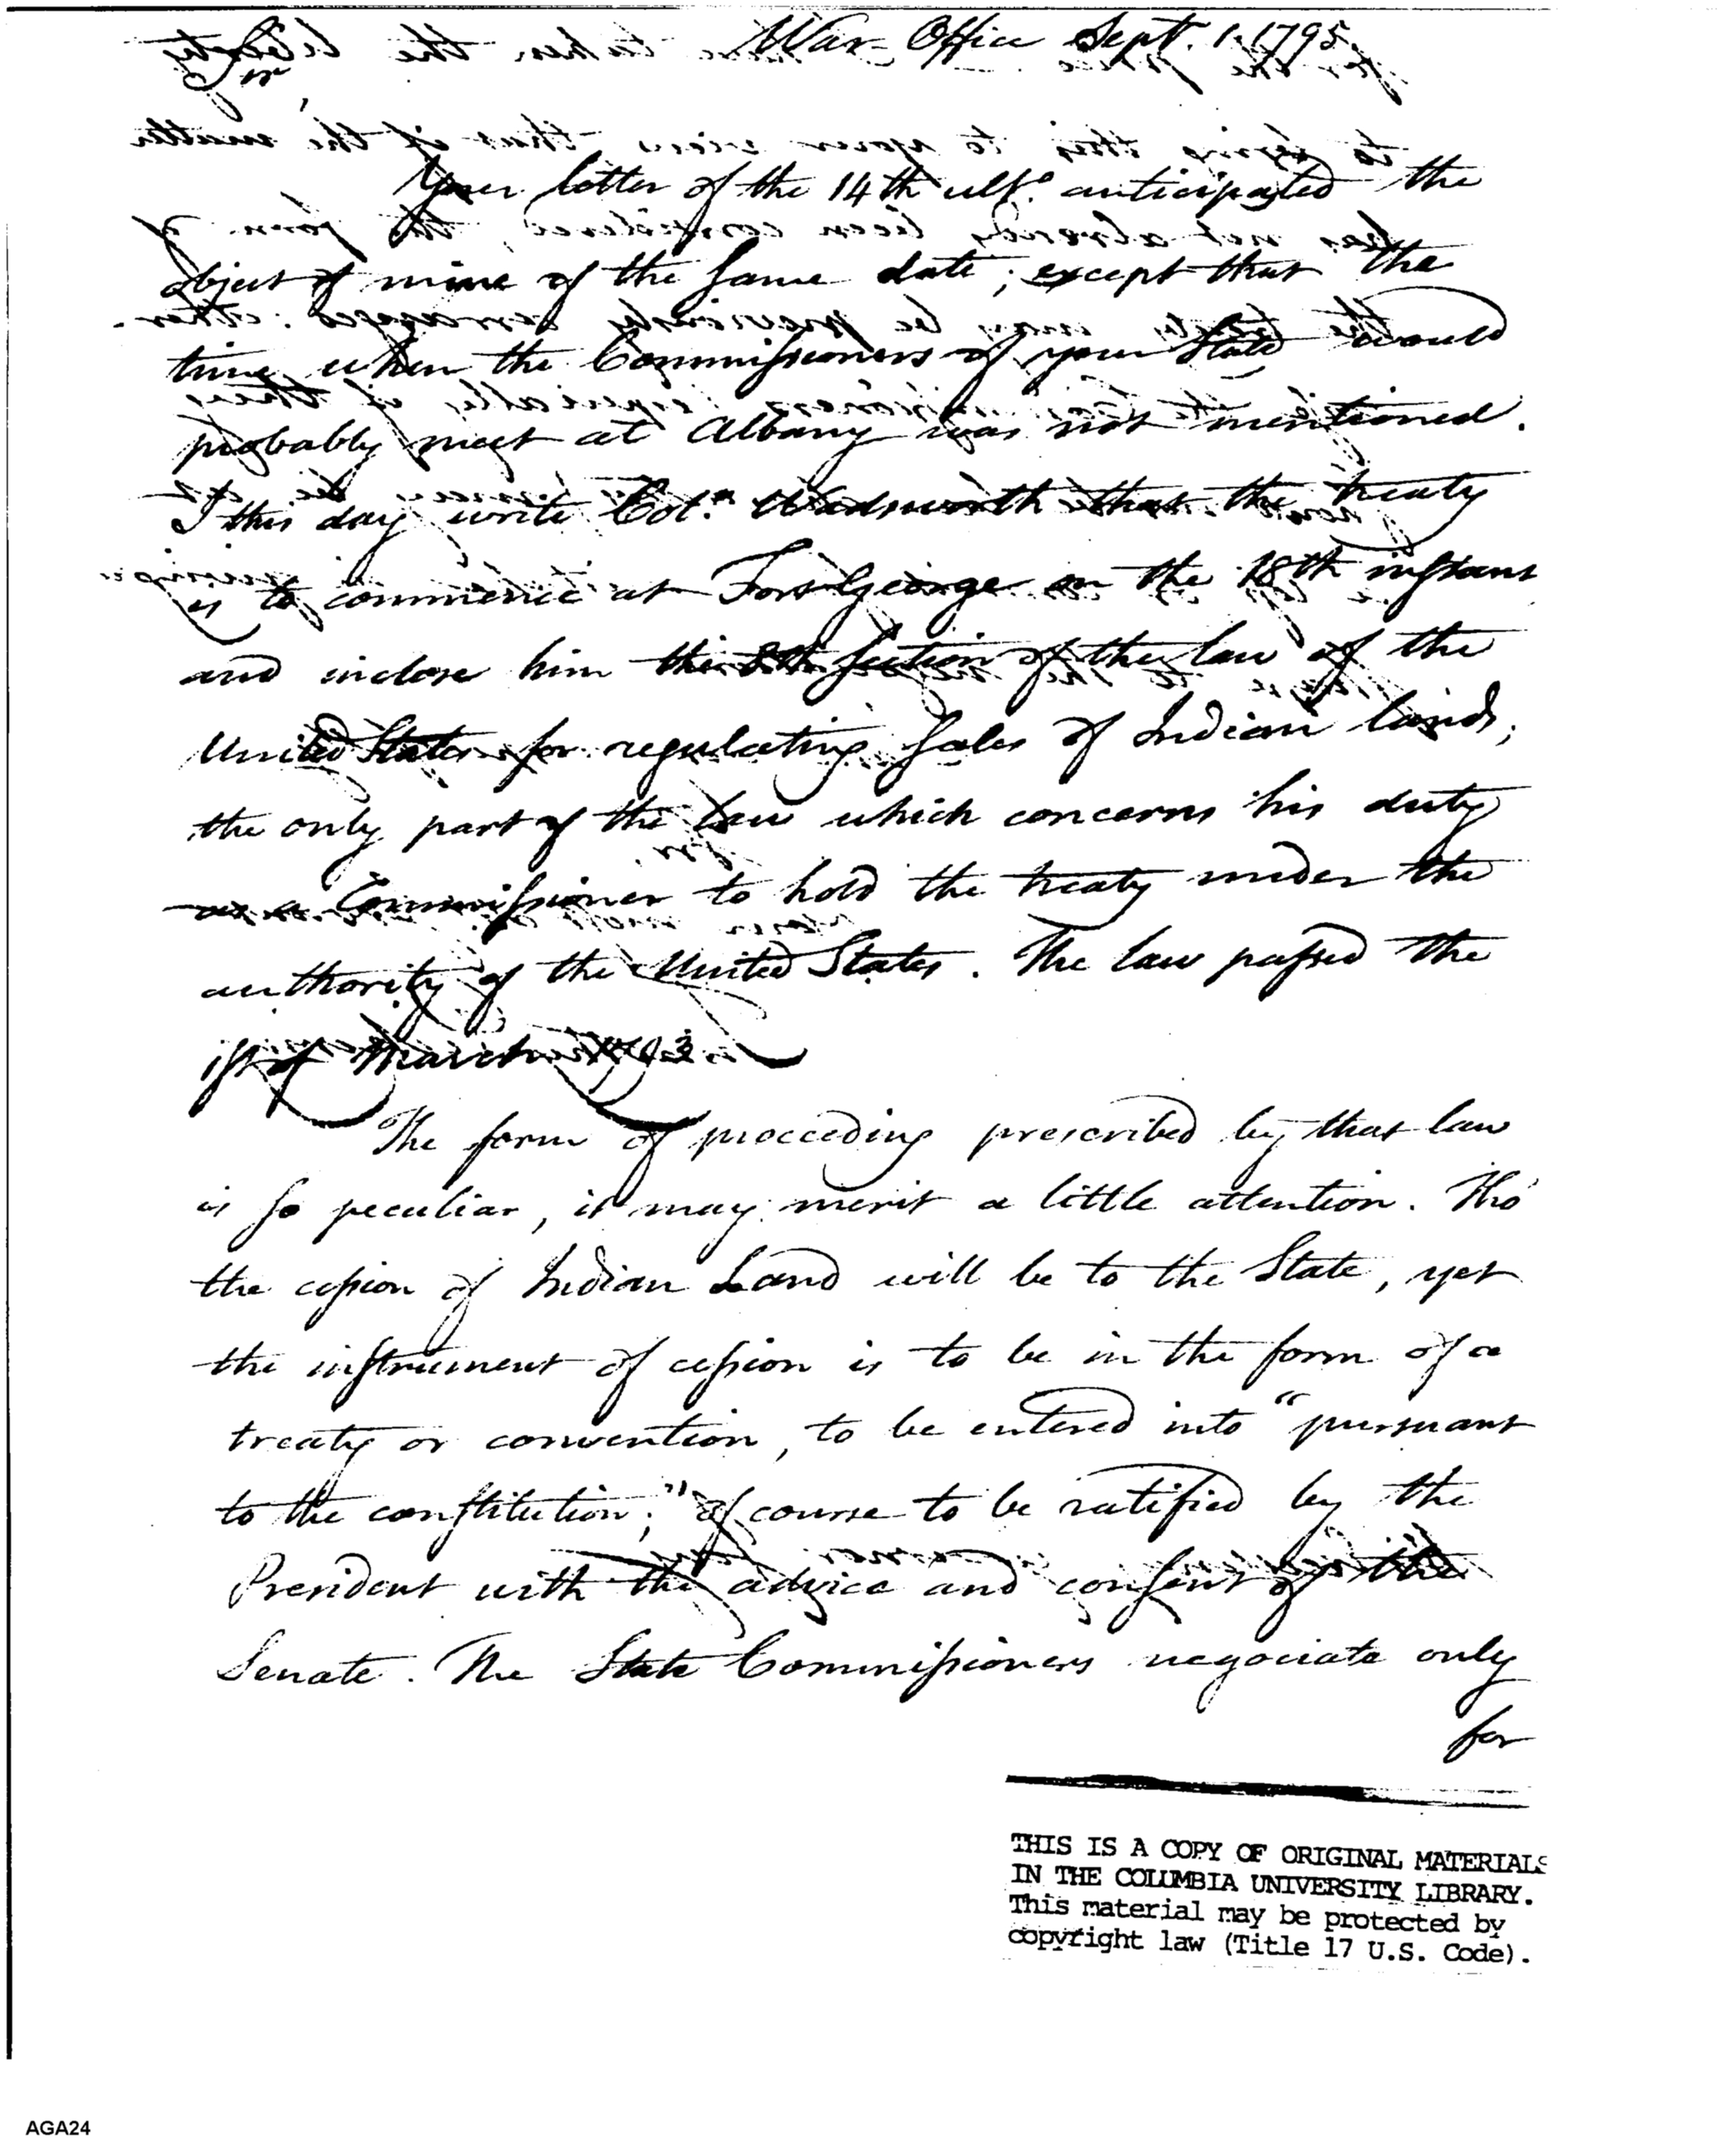 War Office Sept. 1. 1795.
Sir,
Your letter of the 14th ulto. anticipated the
object of mine of the same date; except that the
time when the Commissioners of your State would
probably meet at Albany was not mentioned.
I this day write Colo. Wadsworth that the treaty
is to commence at Fort George on the 18th instant
and inclose him the 8th section of the law of the
United States for regulating sales of Indian lands,
the only part of the law which concerns his duty
as a Commissioner to hold the treaty under the
authority of the United States. The law passed the
1st of March 1793.
The form of proceeding prescribed by that law
is so peculiar, it may merit a little attention. Tho'
the cession of Indian Land will be to the State, yet
the instrument of cession is to be in the form of a
treaty or convention, to be entered into "pursuant
to the constitution;" of course to be ratified by the
President with the advice and consent of the
Senate. The State Commissioners negociate only
for
THIS IS A COPY OF ORIGINAL MATERIALS
IN THE COLUMBIA UNIVERSITY LIBRARY.
This material may be protected by
copyright law (Title 17 U.S. Code).
AGA24